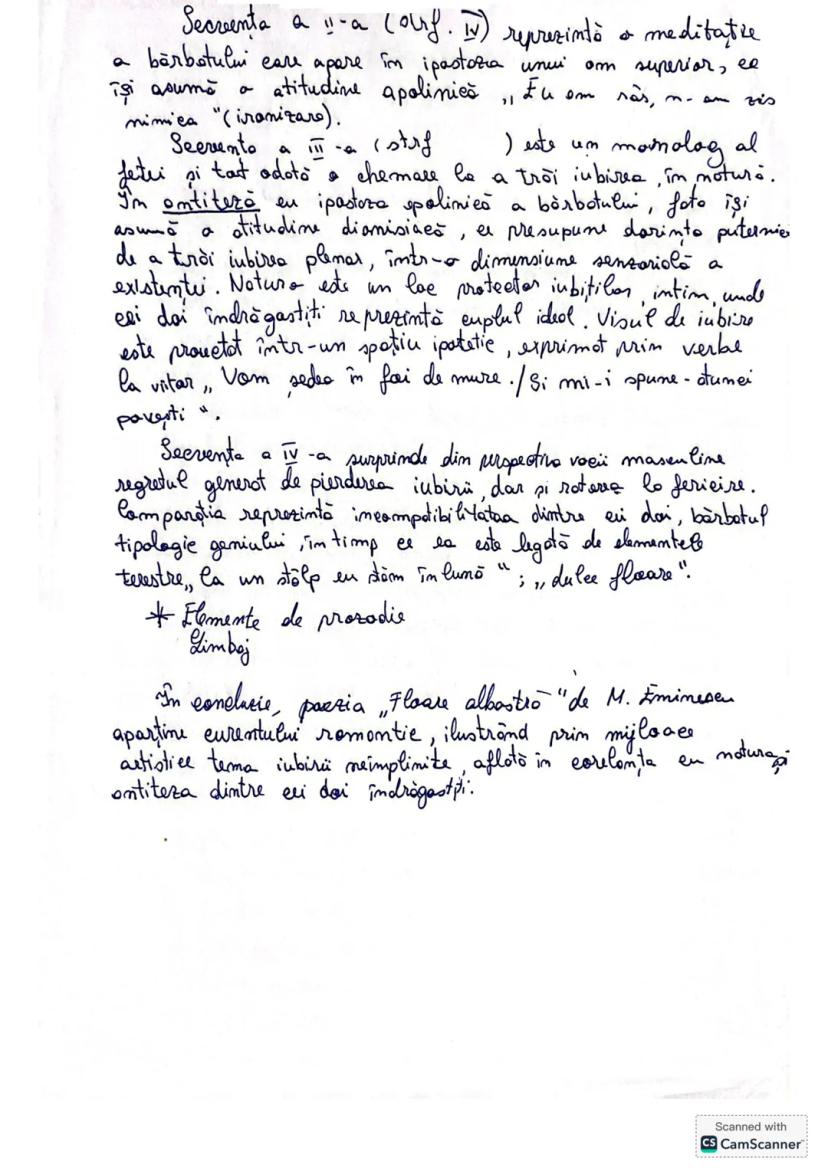 Secvența a II-a (strf. IV) reprezintă o meditație
a bărbatului care apare în ipostaza unui om superior, ce
își asumă o atitudine apolinică „Eu am râs, n-am zis
nimica "(ironizare).
Secvența a III-a (strf ) este un monolog al
fetei și tot odotă o chemare la a trăi iubirea, în natură.
În antiteză cu ipostaza apolinică a bărbatului, fata își
asumă o atitudine dionisiacă, ce presupune dorința puternică
de a trăi iubirea plenar, într-o dimensiune senzorială a
existenței. Natura este un loc protector iubiților, intim, unde
cei doi îndrăgostiți reprezintă cuplul ideal. Visul de iubire
este proiectat într-un spațiu ipotetic, exprimat prin verbe
la viitor „ Vom ședea în foi de mure./Și mi-i spune-atunci
povești ".
Secvența a IV-a surprinde din perspectiva vocii masculine
regretul generat de pierderea iubirii, dar și rotarea la fericire.
Comparația reprezintă incompatibilitatea dintre cei doi, bărbatul
tipologie geniului, în timp ce ea este legată de elementele
terestre„ Ca un stâlp eu stam în lună " ; „ dulce floare".
* Elemente de prozodie
Limbaj
În concluzie, poezia „Floare albastră "de M. Eminescu
aparține curentului romantic, ilustrând prin mijloace
artistice tema iubirii neîmplinite, aflată în corelanța cu natura și
antiteza dintre cei doi îndrăgostiți.
Scanned with
CS CamScanner